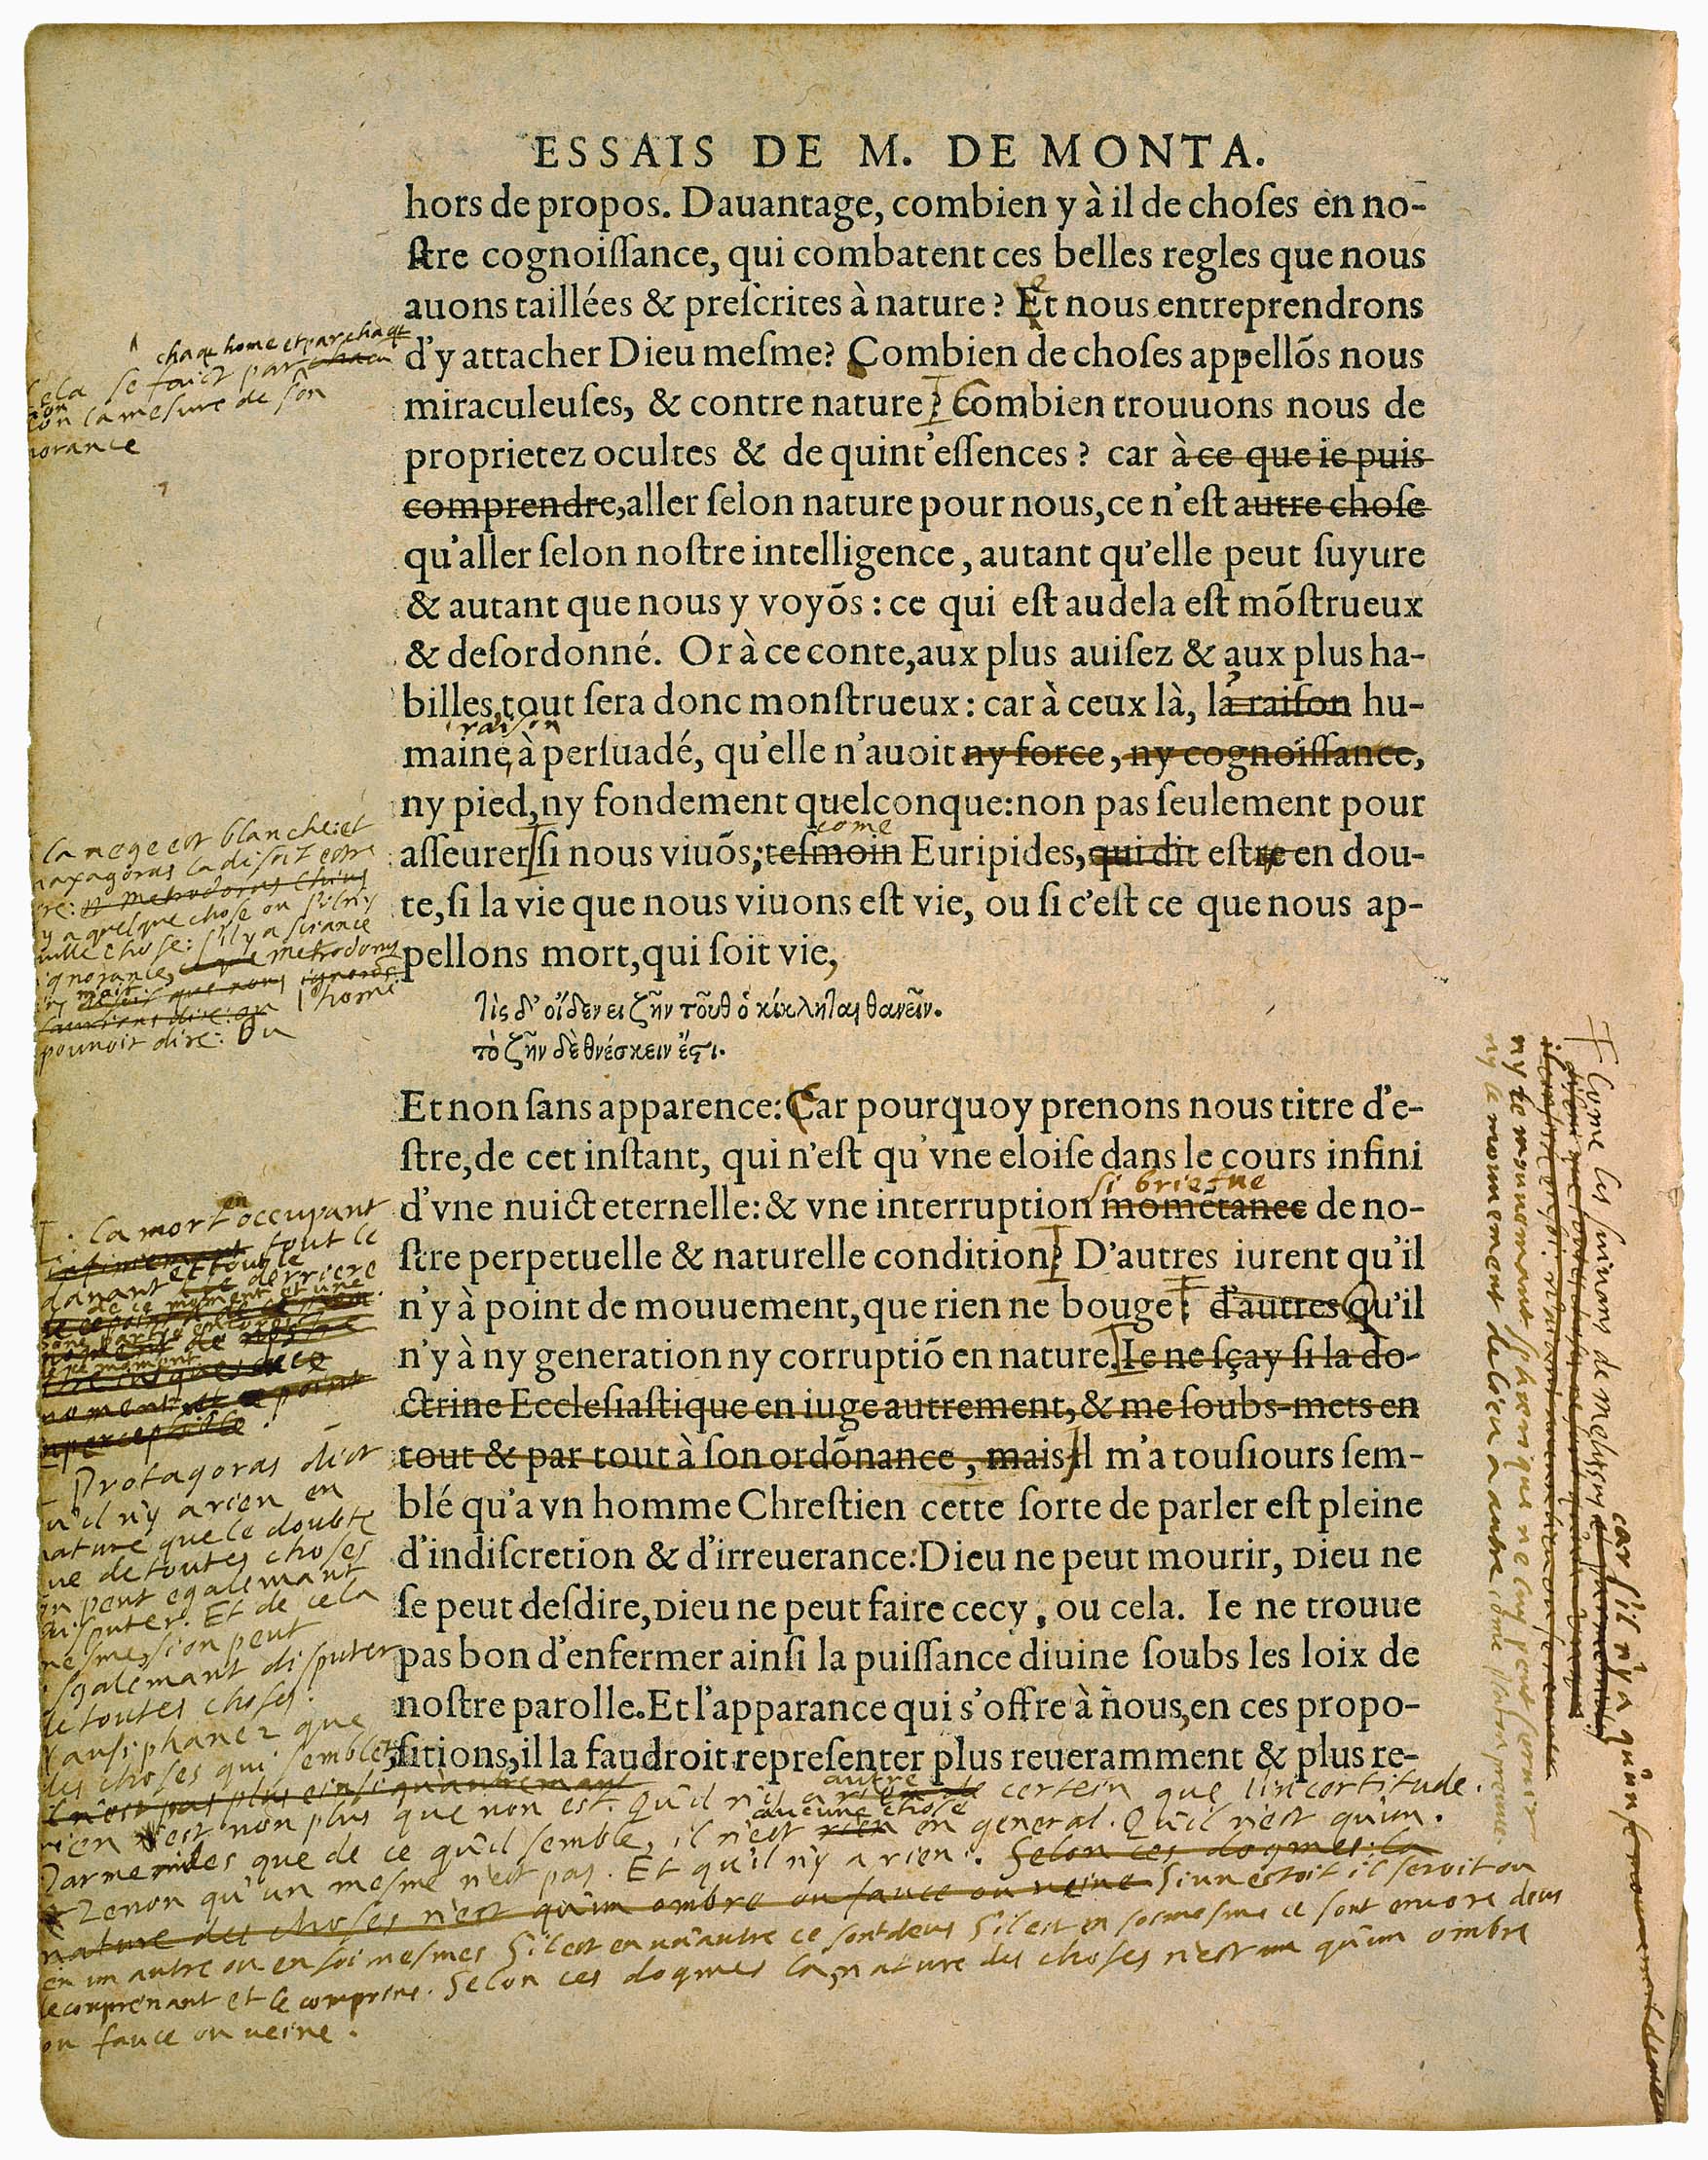 ESSAIS DE M. DE MONTA.
hors de propos. Dauantage, combien y à il de choſes en no-
ſtre cognoiſſance, qui combatent ces belles regles que nous
auons taillées & preſcrites à nature? Et nous entreprendrons
d'y attacher Dieu meſme? Combien de choſes appellõs nous
miraculeuſes, & contre nature? Combien trouuons nous de
proprietez ocultes & de quint'eſſences? car à ce que ie puis
comprendre, aller ſelon nature pour nous, ce n'eſt autre choſe
qu'aller ſelon noſtre intelligence, autant qu'elle peut ſuyure
& autant que nous y voyõs: ce qui eſt audela eſt mõſtrueux
& deſordonné. Or à ce conte, aux plus auiſez & aux plus ha-
billes, tout ſera donc monſtrueux: car à ceux là, la raiſon hu-
raison
maine, à perſuadé, qu'elle n'auoit ny force, ny cognoiſſance,
ny pied, ny fondement quelconque: non pas ſeulement pour
come
aſſeurer ſi nous viuõs; teſmoin Euripides, qui dit eſtre en dou-
te, ſi la vie que nous viuons eſt vie, ou ſi c'eſt ce que nous ap-
pellons mort, qui ſoit vie,
Τὶς δ' οἶδεν ει ζῆν τοῦθ ὁ κέκληται θανεῖν.
τὸ ζῆν δὲ θνέσκειν ἔςι.
Et non ſans apparence: Car pourquoy prenons nous titre d'e-
ſtre, de cet inſtant, qui n'eſt qu'vne eloiſe dans le cours infini
si briefue
d'vne nuict eternelle: & vne interruption momẽtanee de no-
ſtre perpetuelle & naturelle condition? D'autres iurent qu'il
n'y à point de mouuement, que rien ne bouge: d'autres Qu'il
n'y à ny generation ny corruptiõ en nature. Ie ne ſçay ſi la do-
ctrine Eccleſiaſtique en iuge autrement, & me ſoubs-mets en
tout & par tout à ſon ordõnance, mais Il m'a touſiours ſem-
blé qu'a vn homme Chreſtien cette ſorte de parler eſt pleine
d'indiſcretion & d'irreuerance: Dieu ne peut mourir, Dieu ne
ſe peut deſdire, Dieu ne peut faire cecy, ou cela. Ie ne trouue
pas bon d'enfermer ainſi la puiſſance diuine ſoubs les loix de
noſtre parolle. Et l'apparance qui s'offre à nous, en ces propo-
ſitions, il la faudroit repreſenter plus reueramment & plus re-
chaqe home et par chaqe
cela se faict par chacũ
con la mesure de son
norance
la nege est blanche: et
naxagoras la disoit estre
re: Metrodorus Chius
y a quelque chose ou s'il n'y
nulle chose: s'il y a sciance
ignorance, metrodorus
l'home
pouuoit dire: Ou
la mort en occupant
tout le
dauant et tout le derriere
de ce moment et une
Protagoras dict
qu'il n'y a rien en
nature que le doubte
que de toutes choses
on peut egalemant
disputer. Et de cela
mesmes si on peut
egalemant disputer
de toutes choses:
Nausiphanez que
des choses qui semblent
il n'est pas plus einsi qu'autremant
rien n'est non plus que non est. Qu'il n'y a autre certein que l'incertitude.
Parmenides que de ce qu'il semble, il n'est aucune chose rien en general. Qu'il n'est qu'un.
Zenon qu'un mesme n'est pas. Et qu'il n'y a rien. Selon ces dogmes la
nature des choses n'est qu'un ombre ou fauce ou veine Si un estoit il seroit ou
en un autre ou en soi mesmes S'il est en un autre ce sont deus S'il est en soi mesme ce sont encore deus
le comprenant et le comprins. Selon ces dogmes la nature des choses n'est qu'un ombre
ou fauce ou veine.
Come les suiuans de Melissus
car s'il n'y a qu'un
ny le mouuemant sphærique ne luy peut seruir
ny le mouuement de lieu a autre come Platon preuue.